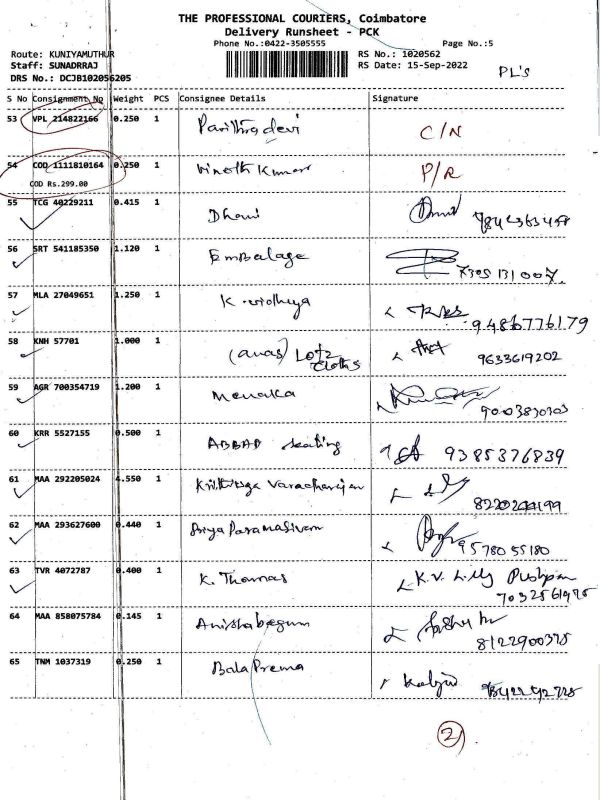 THE PROFESSIONAL COURIERS, Coimbatore
Delivery Runsheet - PCK
Phone No.:0422-3505555 Page No.:5
Route: KUNIYAMUTHUR RS No.: 1020562
Staff: SUNADRRAJ RS Date: 15-Sep-2022
DRS No.: DCJB102056205 PL'S
S No Consignment No Weight PCS Consignee Details Signature
53 VPL 214822166 0.250 1 Pavithradevi C/N
54 COD 1111810164 0.250 1 Vinoth Kumar P/R
COD Rs.299.00
55 TCG 40229211 0.415 1 Dhani
56 SRT 541185350 1.120 1 Embalage
7305131007.
57 MLA 27049651 1.250 1 K.
9486776179
58 KNH 57701 1.000 1 (anas) Lotz
Cloths 9633619202
59 AGR 700354719 1.200 1 Menaka
9003830303
60 KRR 5527155 0.500 1 ABBAD Seating 9385376839
61 MAA 292205024 4.550 1 Krithiga Varadharajan
62 MAA 293627600 0.440 1 Priya Paramasivam
9578055180
63 TVR 4072787 0.400 1 K. Thomas K.V. Lilly Pushpam
64 MAA 858075784 0.145 1 Anishabegum
65 TNM 1037319 0.250 1 Bala Prema
2